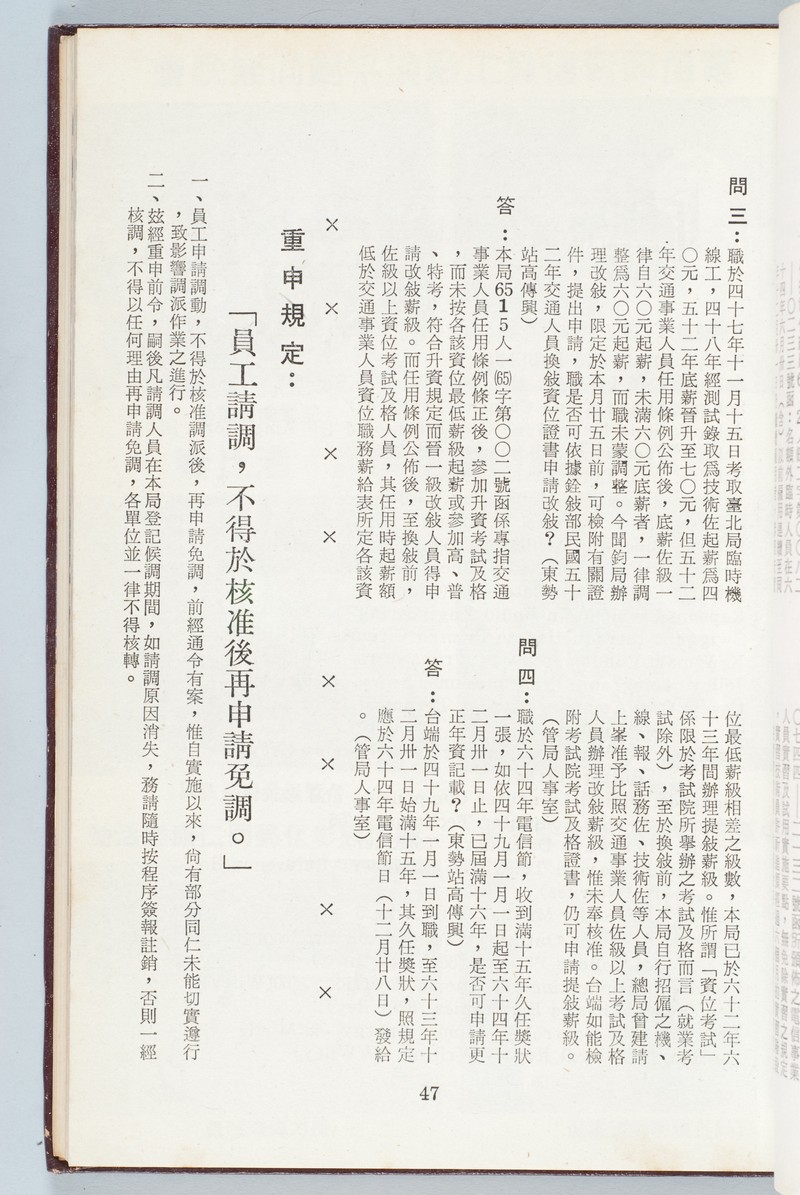 問三：職於四十七年十一月十五日考取臺北局臨時機
線工，四十八年經測試錄取爲技術佐起薪爲四
〇元，五十二年底薪晉升至七〇元，但五十二
年交通事業人員任用條例公佈後，底薪佐級一
律自六〇元起薪，未滿六〇元底薪者，一律調
整爲六〇元起薪，而職未蒙調整。今聞鈞局辦
理改敍，限定於本月廿五日前，可檢附有關證
件，提出申請，職是否可依據銓敍部民國五十
二年交通人員換敍資位證書申請改敍？（東勢
站高傳興）
答：本局6515人一(65)字第〇〇二號函係專指交通
事業人員任用條例條正後，參加升資考試及格
，而未按各該資位最低薪級起薪或參加高、普
、特考，符合升資規定而晉一級改敍人員得申
請改敍薪級。而任用條例公佈後，至換敍前，
佐級以上資位考試及格人員，其任用時起薪額
低於交通事業人員資位職務薪給表所定各該資
位最低薪級相差之級數，本局已於六十二年六
十三年間辦理提敍薪級。惟所謂「資位考試」
係限於考試院所舉辦之考試及格而言（就業考
試除外），至於換敍前，本局自行招僱之機、
線、報、話務佐、技術佐等人員，總局曾建請
上峯准予比照交通事業人員佐級以上考試及格
人員辦理改敍薪級，惟未奉核准。台端如能檢
附考試院考試及格證書，仍可申請提敍薪級。
（管局人事室）
問四：職於六十四年電信節，收到滿十五年久任獎狀
一張，如依四十九月一月一日起至六十四年十
二月卅一日止，已屆滿十六年，是否可申請更
正年資記載？（東勢站高傳興）
答：台端於四十九年一月一日到職，至六十三年十
二月卅一日始滿十五年，其久任獎狀，照規定
應於六十四年電信節日（十二月廿八日）發給
。（管局人事室）
× × × × × × × ×
重申規定：
「員工請調，不得於核准後再申請免調。」
一、員工申請調動，不得於核准調派後，再申請免調，前經通令有案，惟自實施以來，尙有部分同仁未能切實遵行
，致影響調派作業之進行。
二、玆經重申前令，嗣後凡請調人員在本局登記候調期間，如請調原因消失，務請隨時按程序簽報註銷，否則一經
核調，不得以任何理由再申請免調，各單位並一律不得核轉。
47